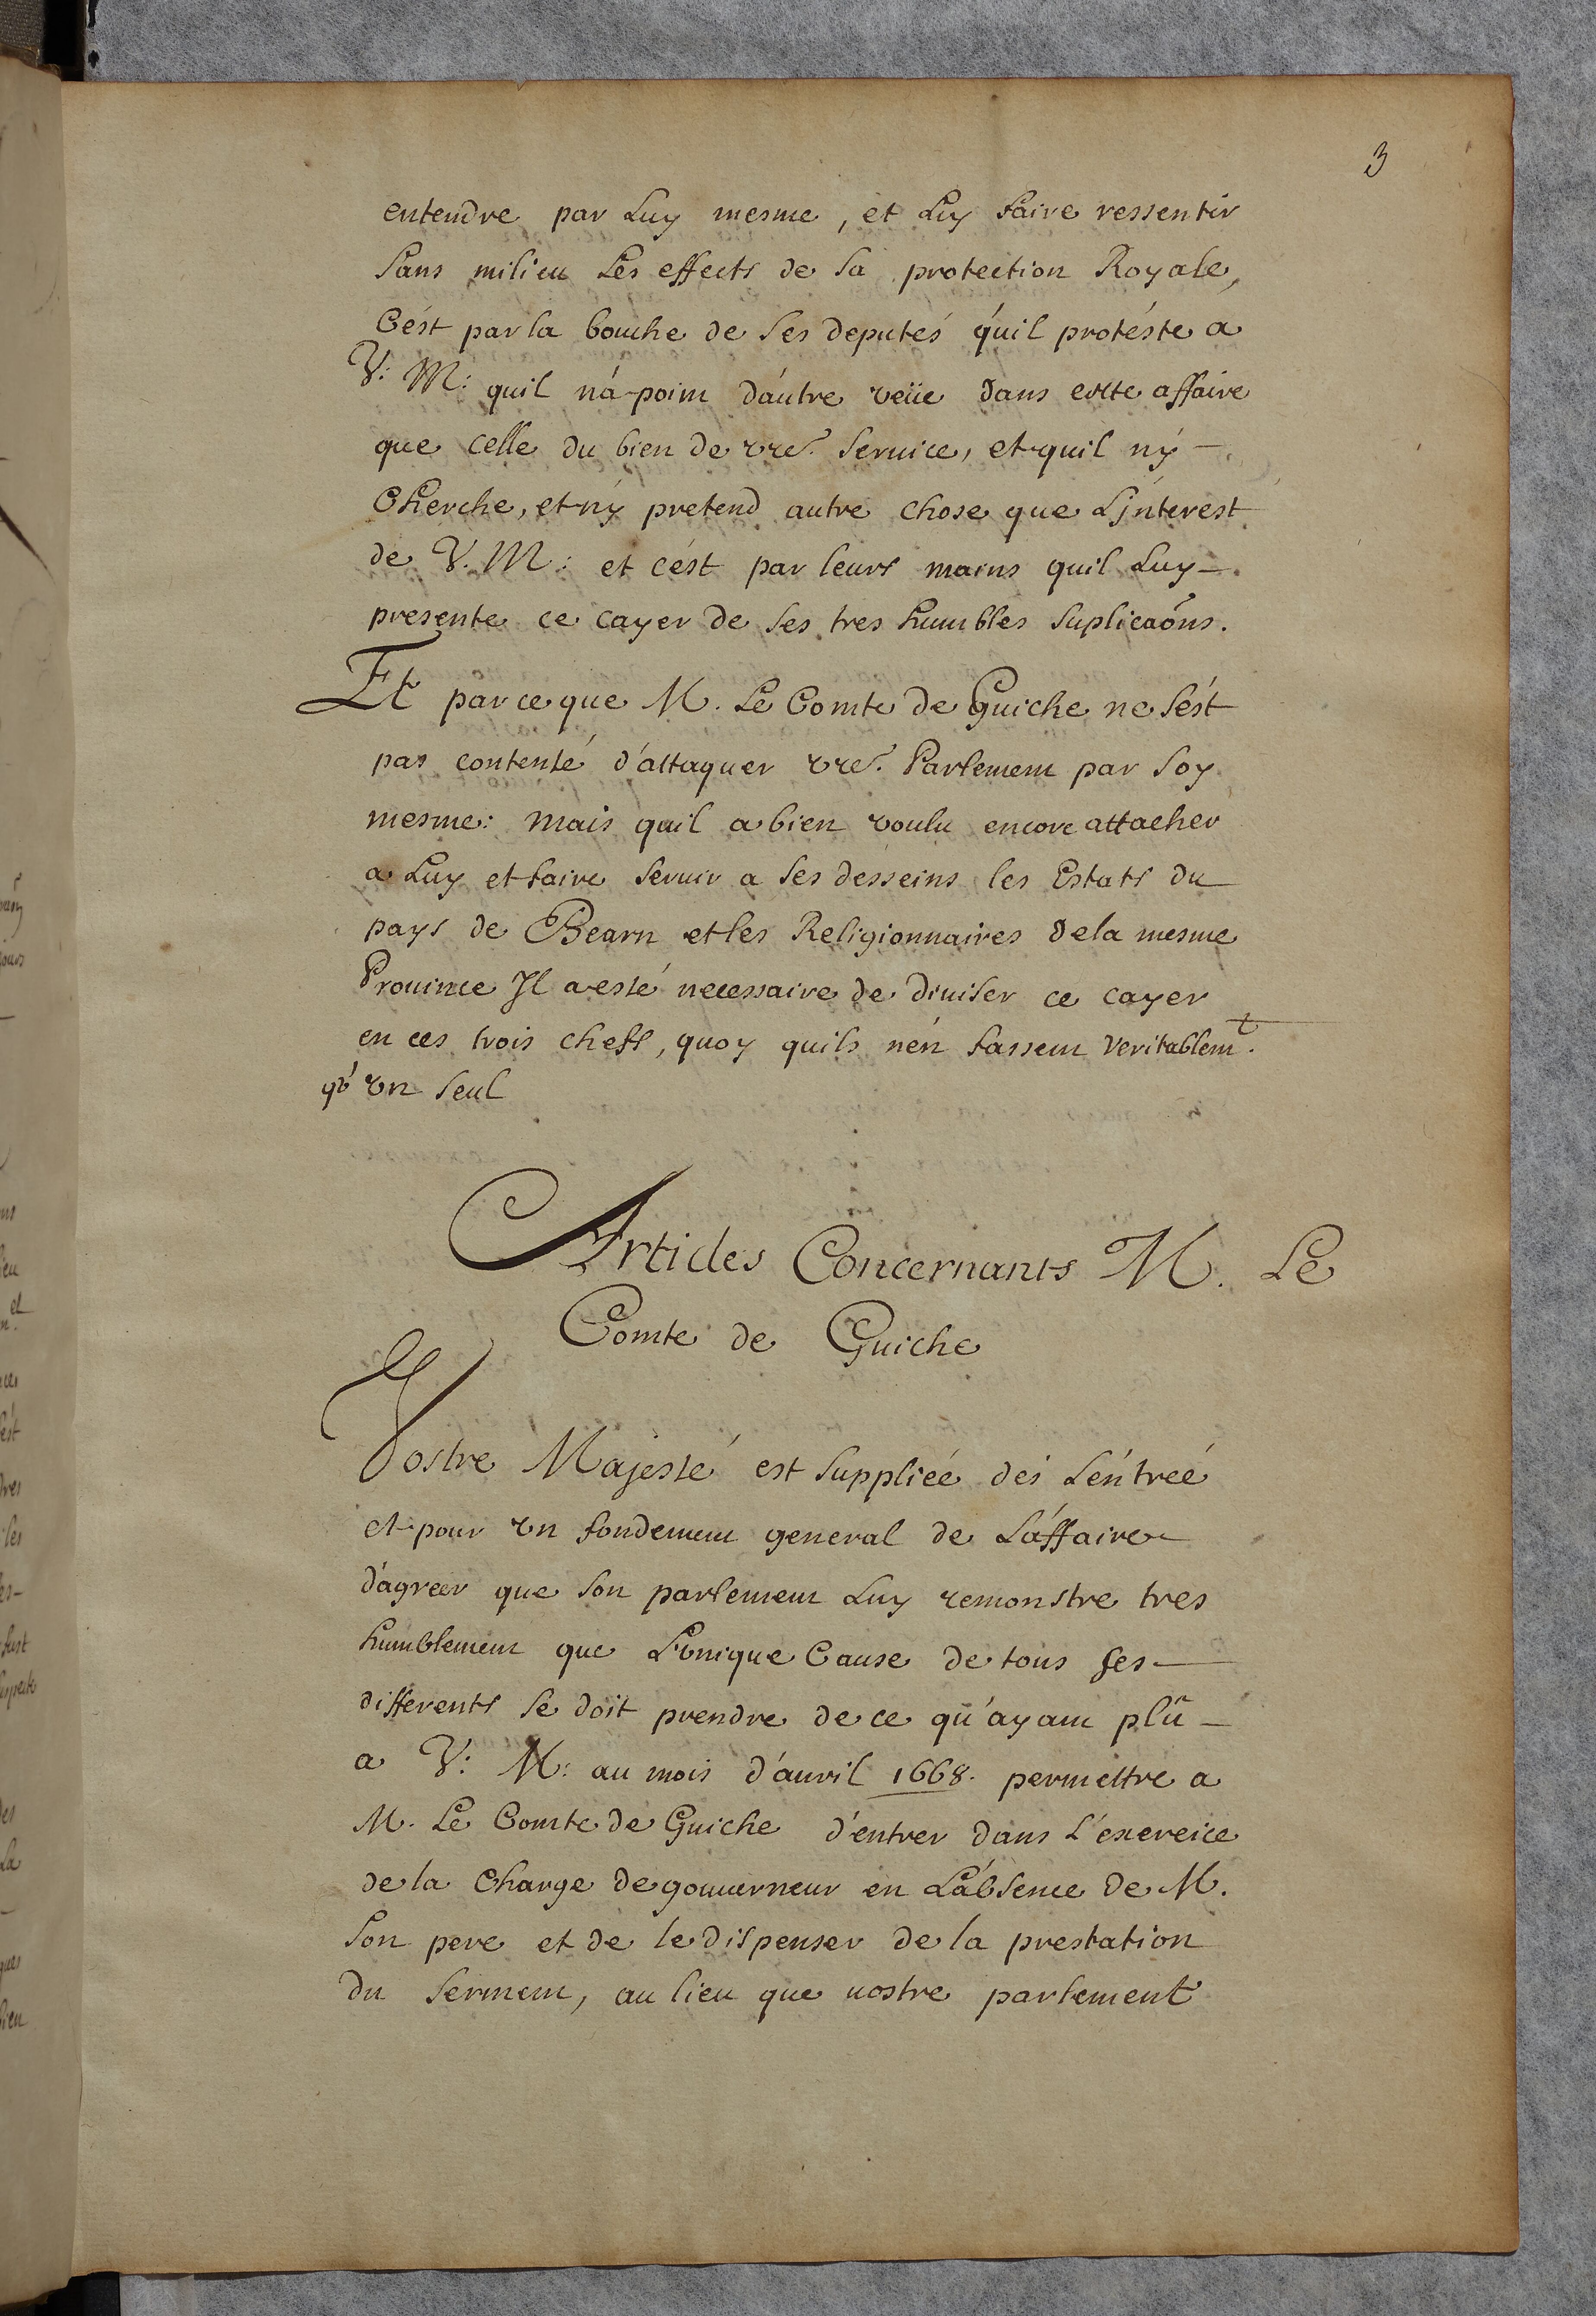 3
entendre par Luy mesme, et Luy faire ressentir
Sans milieu Les effects de Sa protection Royale,
C'ést par la bouche de Ses deputés qu'il protéste a
V: M: quil n'a point d'autre veüe dans cette affaire
que celle du bien de vre. Seruice, et quil n'y
Cherche, et n'y pretend autre chose que L'jnterest
de V. M: et c'ést par leurs mains quil Luy
presente ce cayer de Ses tres humbles Suplicaõns.
Et parce que M. Le Comte de Guiche ne S'ést
pas contenté d'attaquer vre. Parlement par Soy
mesme: mais quil a bien voulu encore attacher
a Luy et faire Seruir a Ses desseins les Estats du
pays de Bearn et les Religionnaires de la mesme
Prouince Jl a esté necessaire de diuiser ce cayer
en ces trois chefs, quoy quils n'en fassent veritablemt.
qu'vn Seul
Articles Concernants M. Le
Comte de Guiche
Vostre Majesté est Suppliée dés L'éntreé
et pour vn fondement general de L'affaire
d'agreer que Son parlement Luy remonstre tres
humblement que L'vnique Cause de tous Ses
differents Se doit prendre de ce qu'ayant plû
a V: M: au mois d'auril 1668. permettre a
M. Le Comte de Guiche d'entrer dans L'exercice
de la Charge de gouuerneur en L'absence de M.
Son pere et de le dispenser de la prestation
du Serment, au lieu que vostre parlement